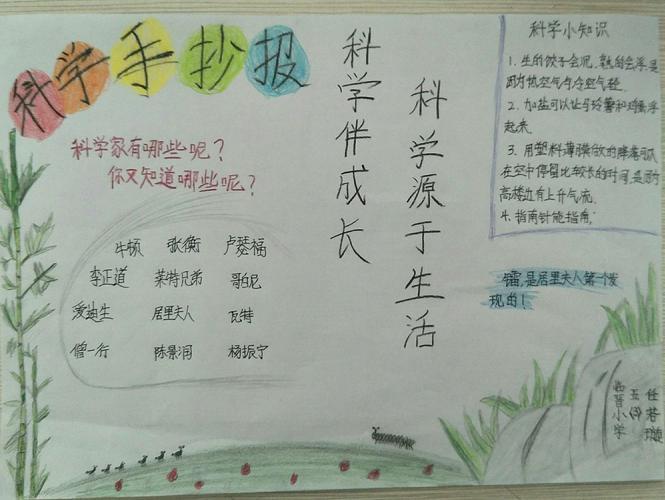 科学手抄报
科学家有哪些呢？
你又知道哪些呢？
牛顿 张衡 卢瑟福
李正道 莱特兄弟 哥白尼
爱迪生 居里夫人 瓦特
僧一行 陈景润 杨振宁
科学伴成长
科学源于生活
科学小知识
1. 生的饺子会沉，熟的会浮是
因为热空气与冷空气轻.
2. 加盐可以让马铃薯和鸡蛋浮
起来.
3. 用塑料薄膜做的降落伞
在空中停留比较长的时间,是因为
高楼边有上升气流.
4. 指南针能指南.
镭,是居里夫人第一个发
现的！
临晋小学
五
任若璇